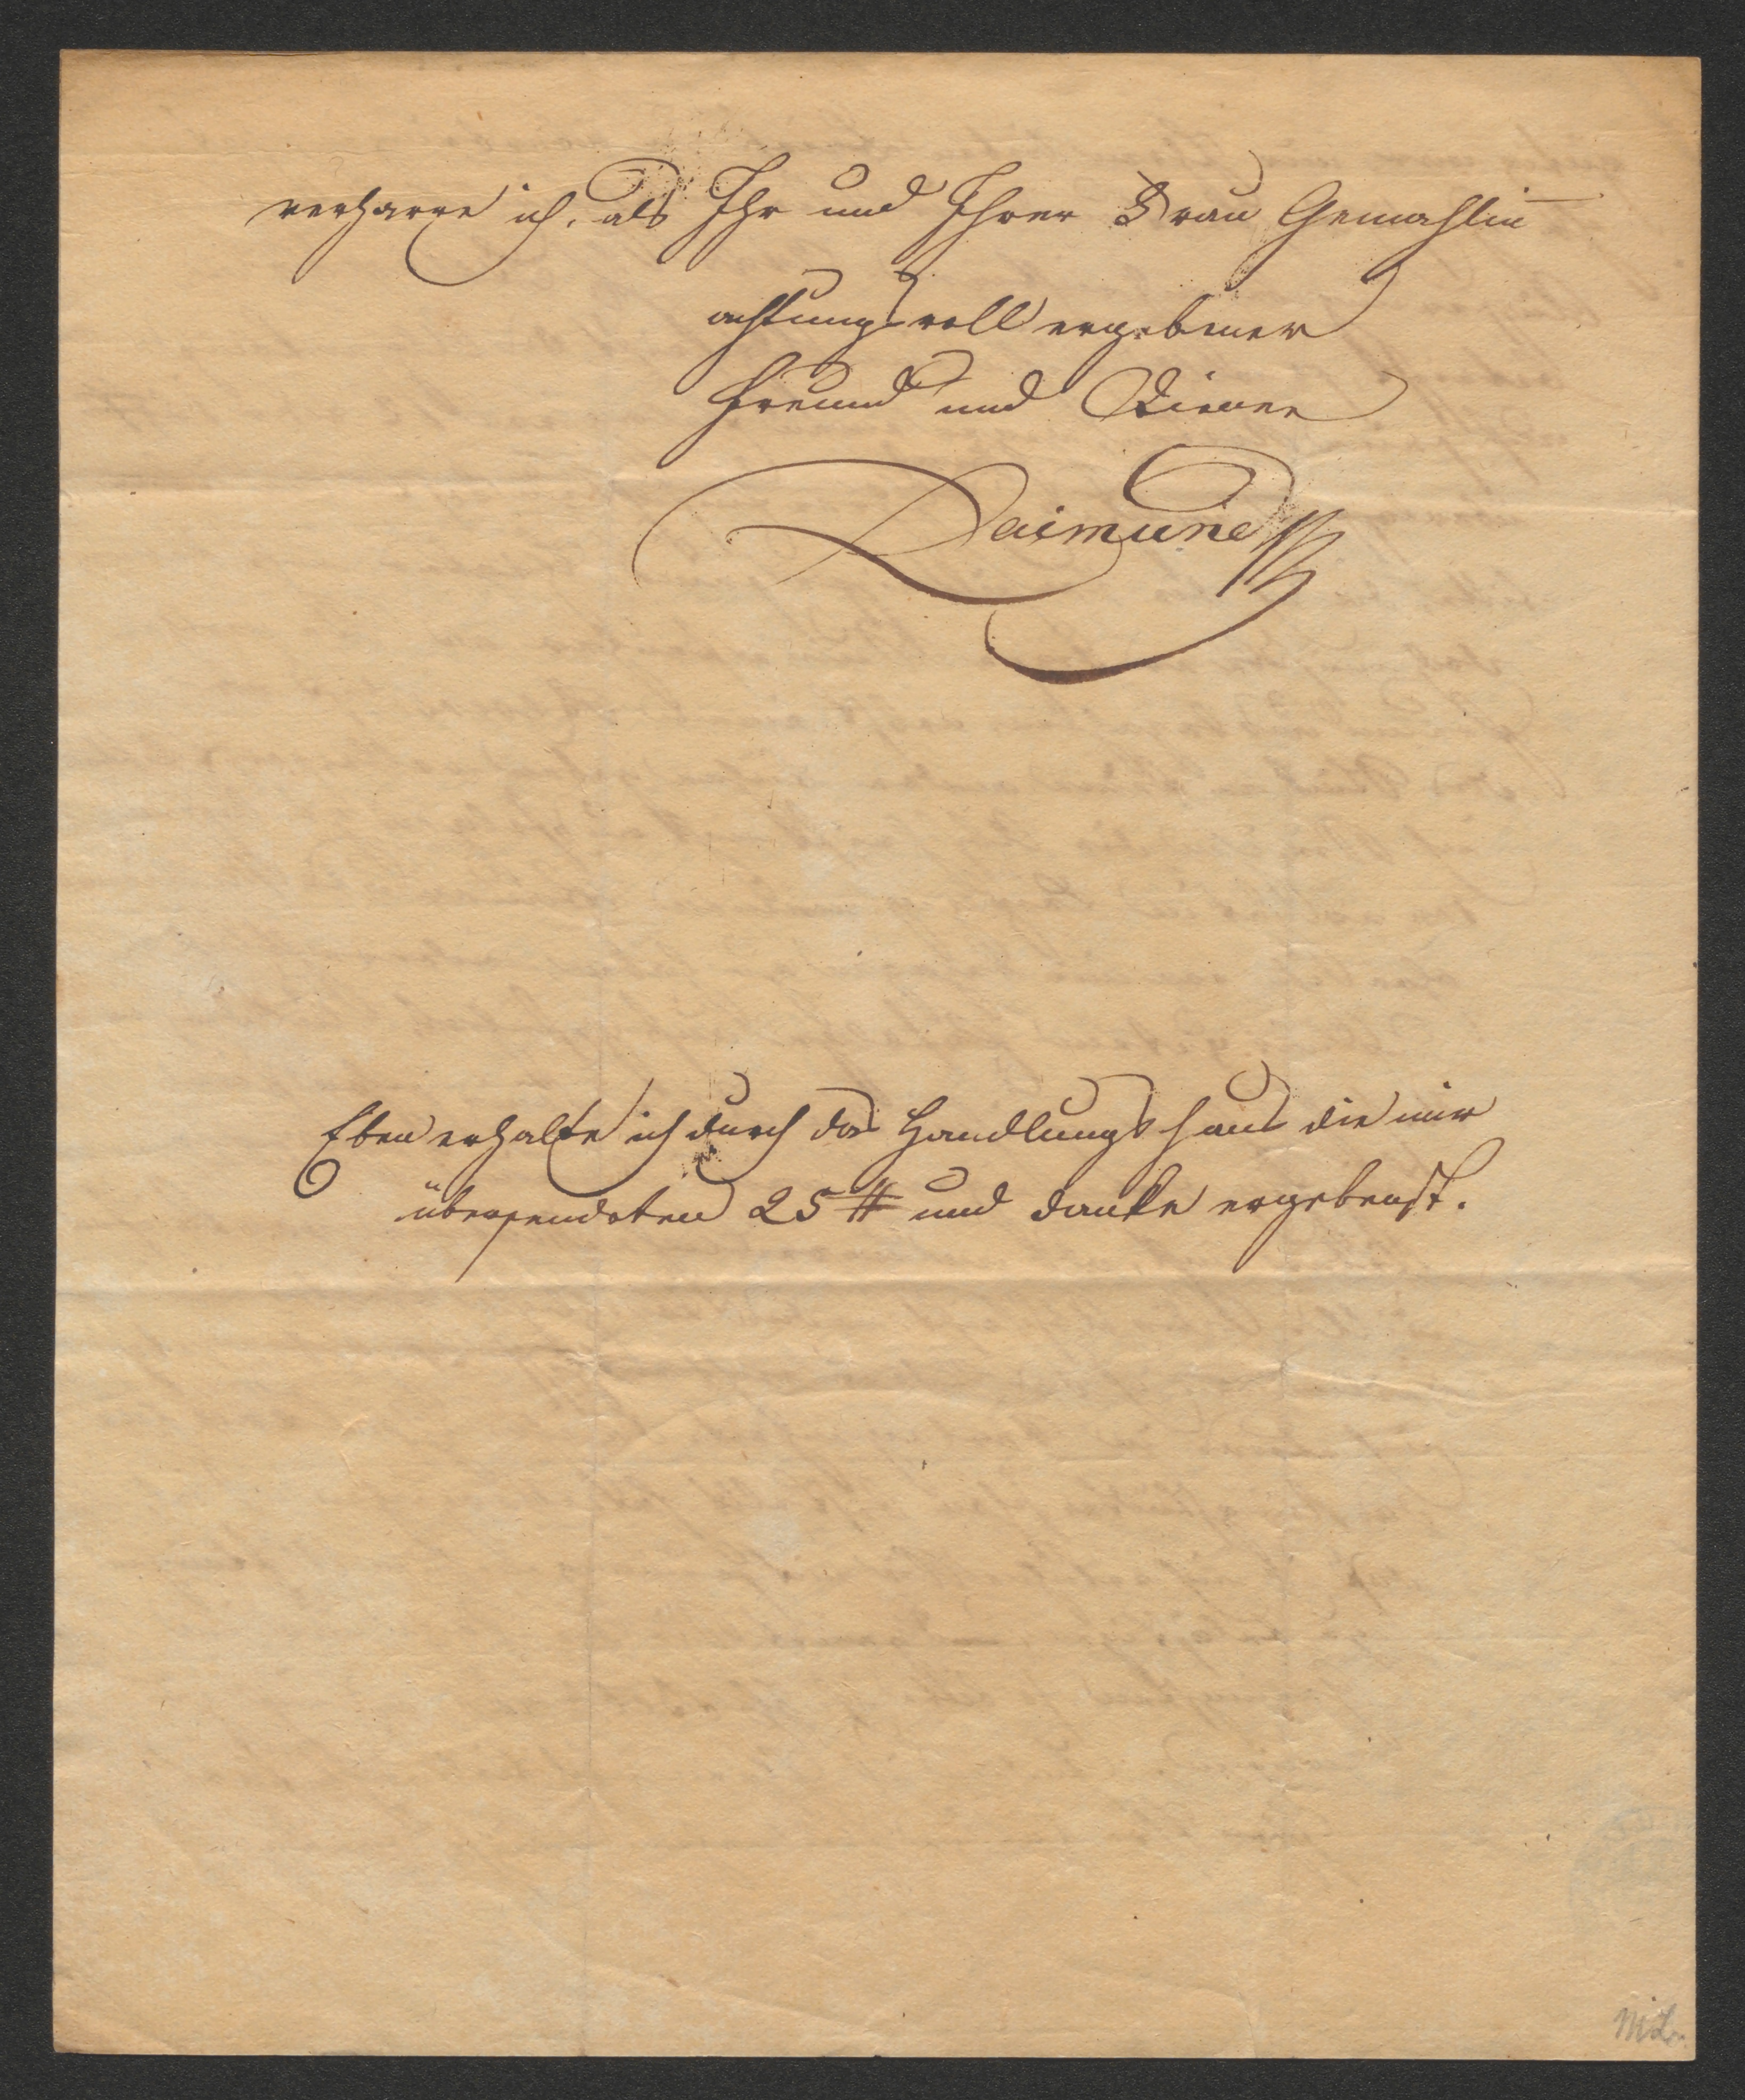 verharre ich, als Ihr und Ihrer Frau Gemahlin
achtungsvoll ergebener
Freund und Diener
Raimund
Eben erhalte ich durch das Handlungshaus die mir
übersendeten 25 # und danke ergebenst.